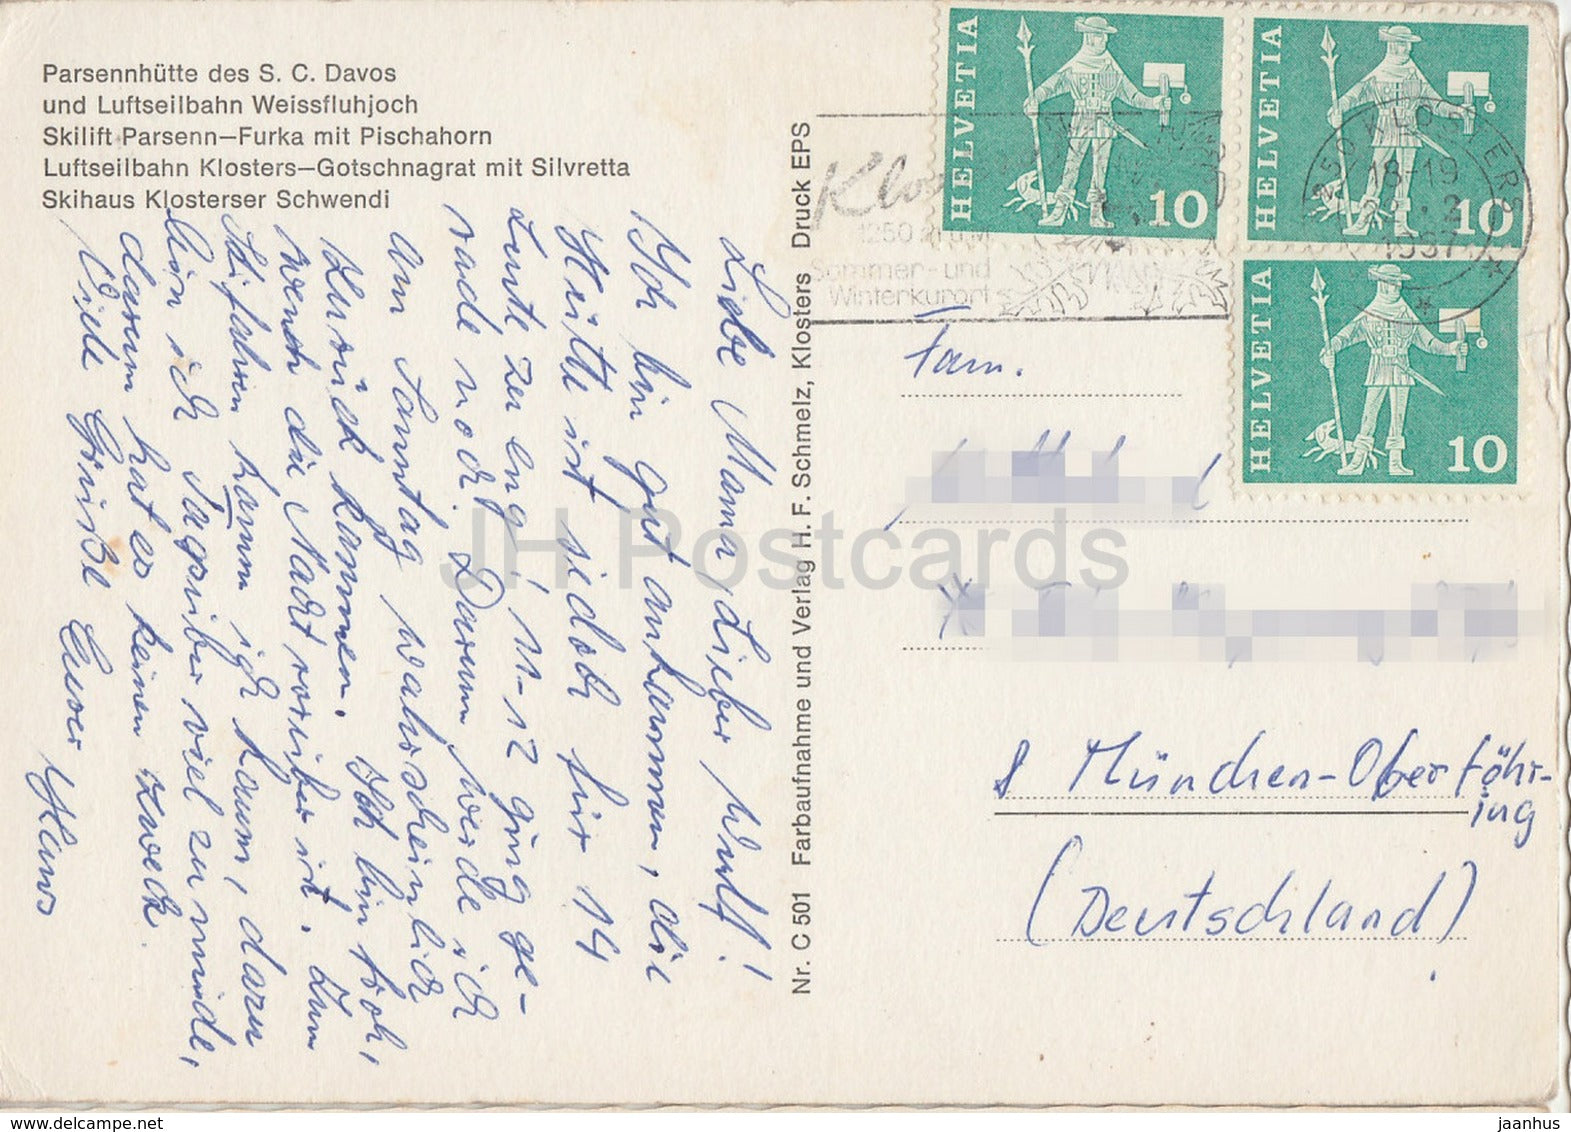 Parsennhütte des S. C. Davos
und Luftseilbahn Weissfluhjoch
Skilift Parsenn–Furka mit Pischahorn
Luftseilbahn Klosters–Gotschnagrat mit Silvretta
Skihaus Klosterser Schwendi
Liebe Mama, Lieber Wulf!
Ich bin gut ankommen, die
Hütte ist jedoch für 14
Leute zu eng, 11-12 ging ge-
rade noch. Darum werde ich
am Sonntag wahrscheinlich
zurück kommen. Ich bin froh,
wenn die Nacht vorüber ist. Zum
Skifahren kamm ich kaum, dazu
bin ich Tagsüber viel zu müde,
darum hat es keinen Zweck.
Viele Grüße Euer Hans
Nr. C 501 Farbaufnahme und Verlag H. F. Schmelz, Klosters Druck EPS
HELVETIA 10
HELVETIA 10
HELVETIA 10
1250 m
Sommer- und
Winterkurort
250 KLOSTERS
18-19
1967
Fam.
8 München-Oberföhr-
ing
(Deutschland)
JH Postcards
delcampe.net
jaanhus